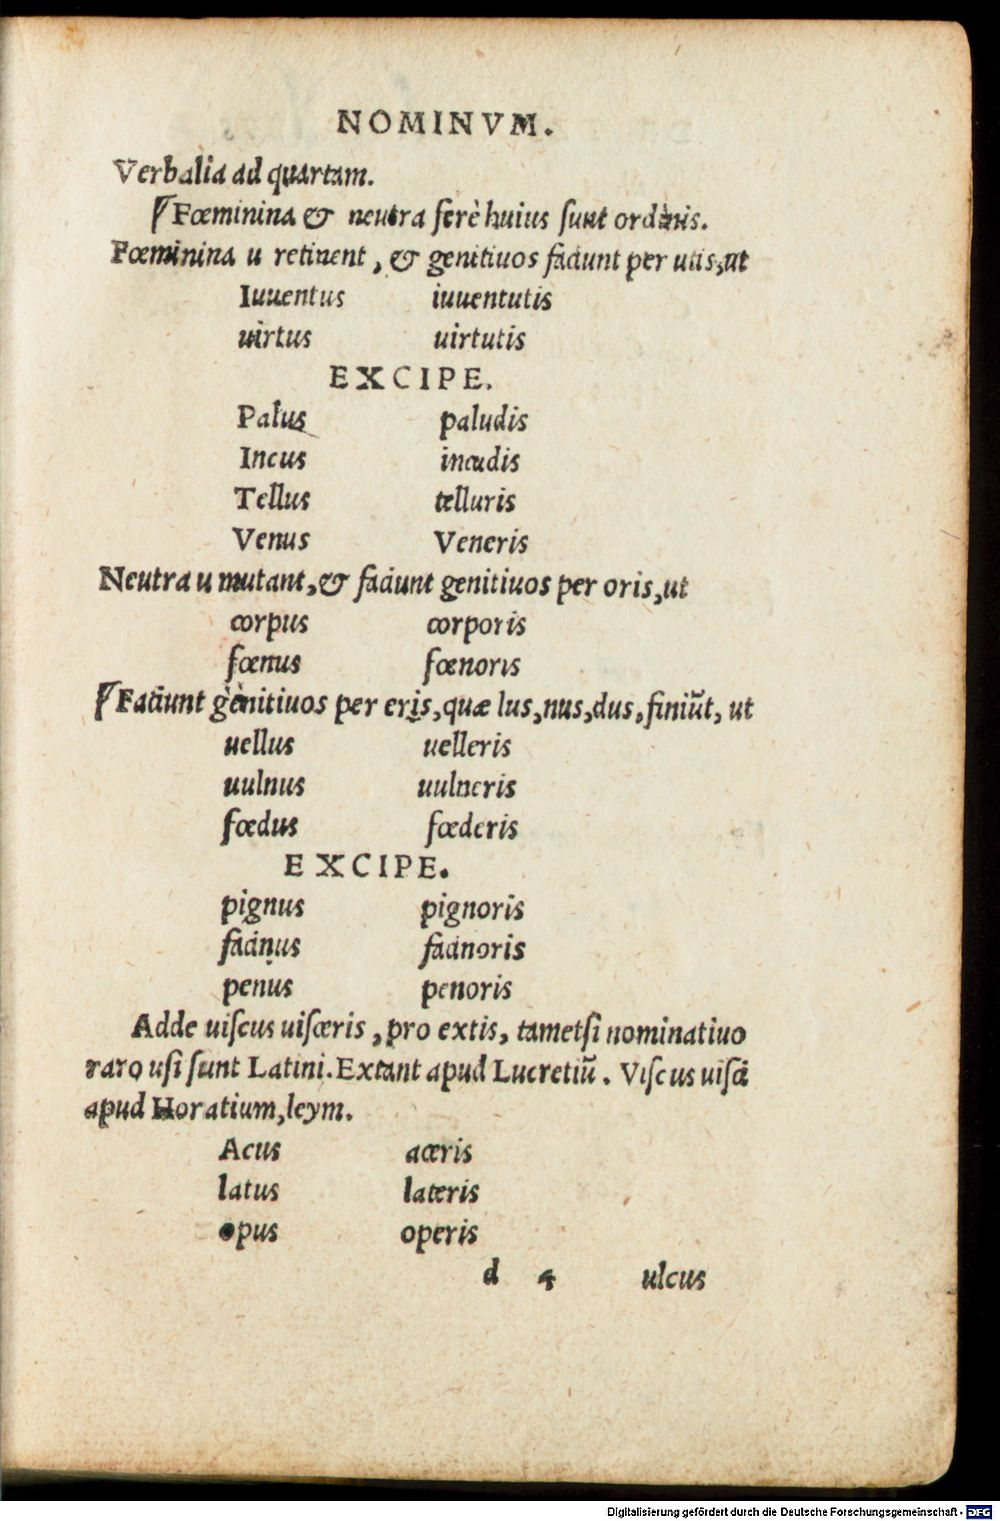 NOMINVM.
Verbalia ad quartam.
¶ Fœminina & neutra ferè huius sunt ordinis.
Fœminina u retinent, & genitiuos faciunt per utis, ut
Iuuentus iuuentutis
uirtus uirtutis
EXCIPE.
Palus paludis
Incus incudis
Tellus telluris
Venus Veneris
Neutra u mutant, & faciunt genitiuos per oris, ut
corpus corporis
fœnus fœnoris
¶ Faciunt genitiuos per eris, quæ lus, nus, dus, finiũt, ut
uellus uelleris
uulnus uulneris
fœdus fœderis
EXCIPE.
pignus pignoris
facinus facinoris
penus penoris
Adde uiscus uisceris, pro extis, tametsi nominatiuo
raro usi sunt Latini. Extant apud Lucretiũ. Viscus uisci
apud Horatium, leym.
Acus aceris
latus lateris
opus operis
d 4 ulcus
Digitalisierung gefördert durch die Deutsche Forschungsgemeinschaft - DFG